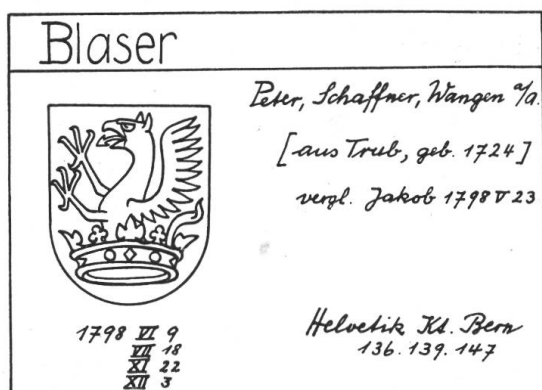 Blaser
Peter, Schaffner, Wangen a/a.
[aus Trub, geb. 1724]
vergl. Jakob 1798 V 23
1798 VI 9
VII 18
XI 22
XII 3
Helvetik Kt. Bern
136. 139. 147